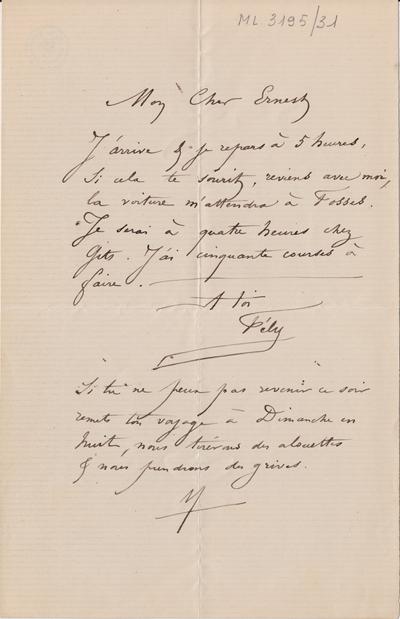 ML 3195/31
Mon Cher Ernest
J'arrive & je repars à 5 heures,
Si cela te sourit, reviens avec moi,
la voiture m'attendra à Fosses.
Je serai à quatre heures chez
Gits. J'ai cinquante courses à
faire.
A toi
Fély
Si tu ne peux pas revenir ce soir
remets ton voyage à Dimanche en
huit, nous tirerons des alouettes
& nous prendrons des grives.